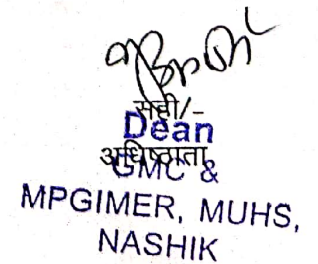 सही/-
Dean
अधिष्ठाता
GMC &
MPGIMER, MUHS,
NASHIK